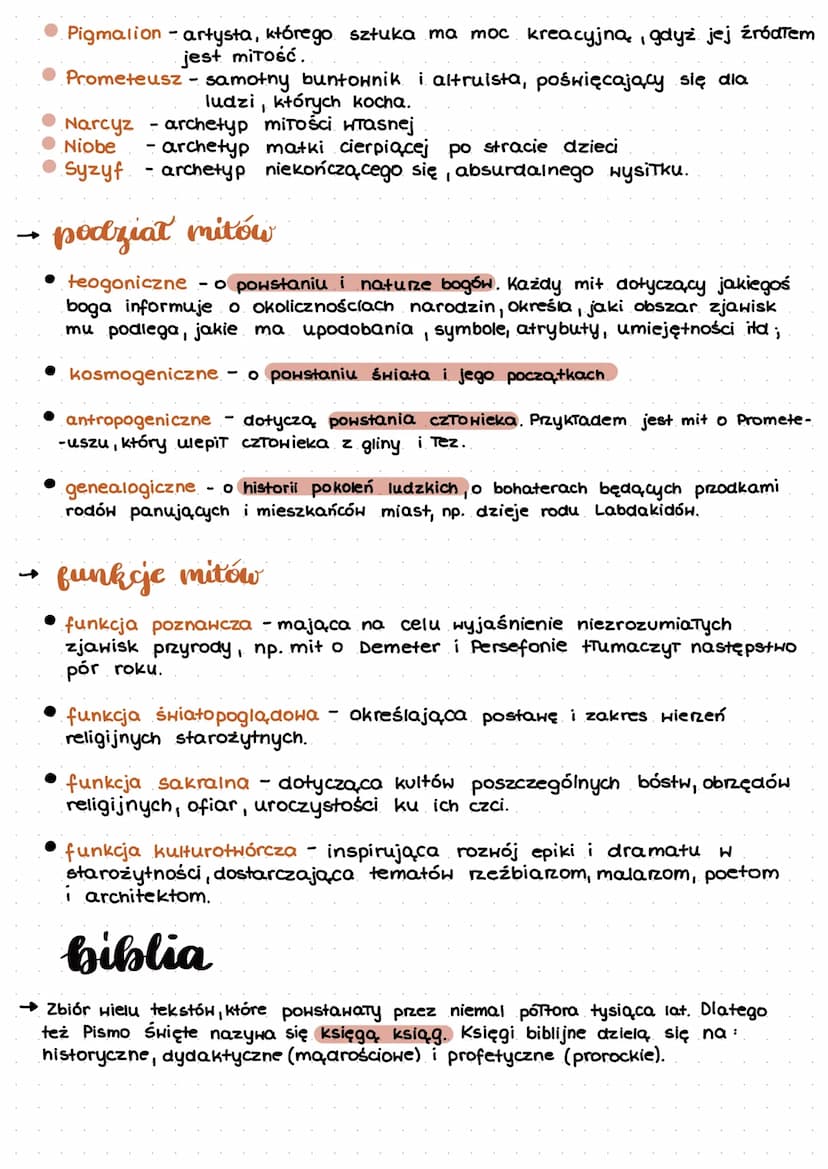 Pigmalion - artysta, którego sztuka ma moc kreacyjną, gdyż jej źródłem
jest miłość.
Prometeusz - samotny buntownik i altruista, poświęcający się dla
ludzi, których kocha.
Narcyz - archetyp miłości własnej
Niobe - archetyp matki cierpiącej po stracie dzieci
Syzyf - archetyp niekończącego się, absurdalnego wysiłku.
→ podział mitów
• teogoniczne - o powstaniu i naturze bogów. Każdy mit dotyczący jakiegoś
boga informuje o okolicznościach narodzin, określa, jaki obszar zjawisk
mu podlega, jakie ma upodobania, symbole, atrybuty, umiejętności itd;
• kosmogeniczne - o powstaniu świata i jego początkach
• antropogeniczne - dotyczą powstania człowieka. Przykładem jest mit o Promete-
-uszu, który ulepił człowieka z gliny i łez.
• genealogiczne - o historii pokoleń ludzkich, o bohaterach będących przodkami
rodów panujących i mieszkańców miast, np. dzieje rodu Labdakidów.
→ funkcje mitów
• funkcja poznawcza - mająca na celu wyjaśnienie niezrozumiałych
zjawisk przyrody, np. mit o Demeter i Persefonie tłumaczył następstwo
pór roku.
• funkcja światopoglądowa - określająca postawę i zakres wierzeń
religijnych starożytnych.
• funkcja sakralna - dotycząca kultów poszczególnych bóstw, obrzędów
religijnych, ofiar, uroczystości ku ich czci.
• funkcja kulturotwórcza - inspirująca rozwój epiki i dramatu w
starożytności, dostarczająca tematów rzeźbiarzom, malarzom, poetom
i architektom.
biblia
→ Zbiór wielu tekstów, które powstawały przez niemal półtora tysiąca lat. Dlatego
też Pismo Święte nazywa się księgą ksiąg. Księgi biblijne dzielą się na:
historyczne, dydaktyczne (mądrościowe) i profetyczne (prorockie).